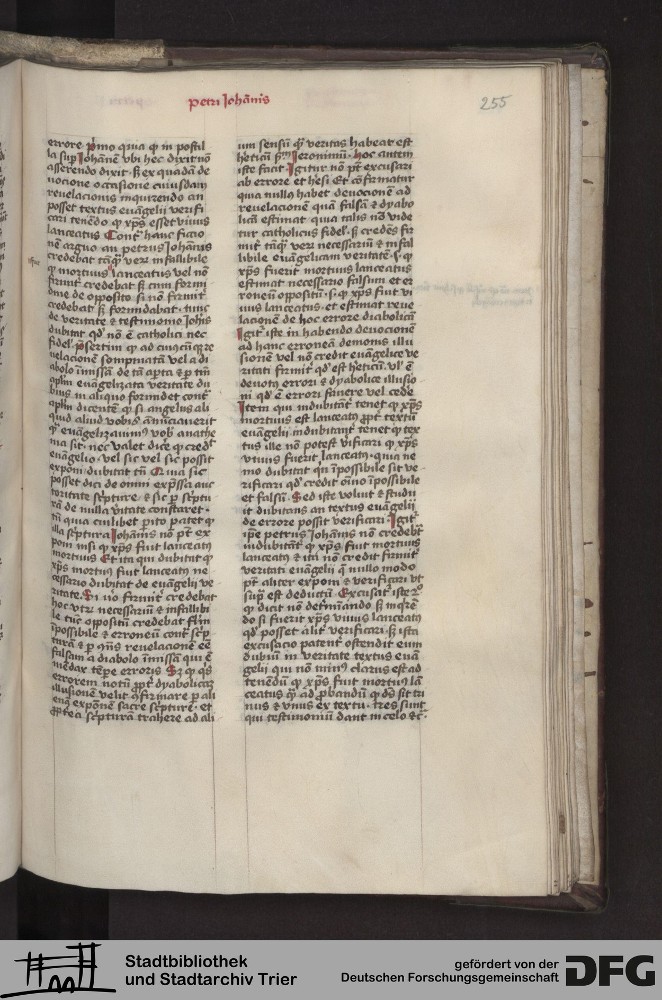 petri Johānis
255
errore p̄mo quia qꝫ in postil
la suꝑ Johānē vbi hec dixit nō
asserendo dixit · sꝫ ex quadā de
uocione occasione cuiusdam
reuelacionis inquirendo an
posset textus euāgelii verifi
cari tenēdo qꝫ xp̄s esset viuus
lanceatus Cont̄ hanc fictio
nē arguo an petrus Johānis
credebat tāqꝫ verū infallibile
qꝫ mortuus lanceatus vel nō
firmit̄ credebat sꝫ cum formi
dine de opposito si nō firmit̄
credebat sꝫ formidabat · tunc
de veritate ⁊ testimonio Johis
dubitat qd' nō ē catholici nec
fidel' p̄sertim qꝫ ad cuiuscūqꝫ re
uelacionē sompniatā vel a di
abolo īmissā de tā apta ⁊ ꝑ tm̄
aplm̄ euāgelizata veritate du
bius in aliquo formidet cont̄
aplm̄ dicentē qꝫ si angelus ali
quid aliud vobis annūciauerit
qꝫ euāgelizauimus vob' anathe
ma sit · nec valet dice qꝫ cred't
euāgelio · vel sic vel sic possit
exponi dubitat tn̄ Quia sic
posset dici de omni exp̄ssa auc
toritate sc̄pture · ⁊ sic ꝑ sc̄ptu
rā de nulla v̄itate constaret ·
tū quia cuilibet ꝑito patet qꝫ
illa sc̄ptura Johānis nō pt̄ ex
poni nisi qꝫ xp̄s fuit lanceatꝰ
mortuus Et ita qui dubitat qꝫ
xp̄s mortuus fuit lanceatꝰ ne
cessario dubitat de euāgelii ve
ritate · Si v̄o firmit̄ credebat
hoc vt verū necessariū ⁊ infallibi
le tūc oppositū credebat fīm
īpossibile ⁊ erroneū cont̄ sc̄p
turā ⁊ ꝑ ꝯn̄s reuelacionē eē
falsam a diabolo īmissā qui ē
mēdax
errorem notū ꝓpt̄ dyabolicaꝫ
illusionē velit ꝯfirmare ꝑ ali
enā expōnē sacre sc̄pture · et
sc̄pturā trahere ad ali
um sensū qꝫ veritas habeat est
h̄eticū
iste facit Igitur nō pt̄ excusari
ab errore et hēsi Et cōfirmatur
quia nullꝰ habet deuocionē ad
reuelacionē quā falsā ⁊ dyabo
licā estimat quia talis nō vide
tur catholicus fidel' · si credēs fir
mit̄ tāqꝫ verū necessariū ⁊ infal
libile euāgelicam veritatē · s · qꝫ
xp̄s fuerit mortuus lanceatus
estimat necessario falsum et er
roneū oppositū · s · qꝫ xp̄s fuit vi
uus lanceatus · et estimat reue
lacionē de hoc errore diabolicā
Igit̄ iste in habendo deuocionē
ad hanc erroneā demonis illu
sionē vel nō credit euāgelice ve
ritati firmit̄ qd' est h̄eticū vl' ē
deuotꝰ errori ⁊ dyabolice illusio
ni qd' ē errori fauere vel cede
Item qui indubitāt̄ tenet qꝫ xp̄s
mortuus est lanceatꝰ ꝓpt̄ textū
euāgelii indubitant̄ tenet qꝫ tex
tus ille nō potest v̄ificari qꝫ xp̄s
viuus fuerit lanceatꝰ · quia ne
mo dubitat qn̄ īpossibile sit ve
rificari qd' credit oīno īpossibile
et falsū · Sed iste voluit ⁊ studu
it dubitans an textus euāgelii
de errore possit verificari · Igit̄
ip̄e petrus Johānis nō credebt̄
indubitāt̄ qꝫ xp̄s fuit mortuus
lanceatꝰ ⁊ ita nō credit firmit̄
veritati euāgelii qꝫ nullo modo
pt̄ aliter exponi ⁊ verificari vt
sup̄ est deductū · Excusat̄ iste
qꝫ dicit nō det̄mīando sꝫ īnq̄rē
do si fuerit xp̄s viuus lanceatꝰ
qd' posset alit̄ verificari · sꝫ ista
excusacio patent̄ ostendit eum
dubiū in veritate textus euā
gelii qui nō minꝰ clarus est ad
tenendū qꝫ xp̄s fuit mortuus lā
ceatus qꝫ ad ꝓbandū qꝫ dꝰ sit tri
nus ⁊ vnus ex textu · tres sunt
qui testimoniū dant in celo ⁊c̄
Stadtbibliothek
und Stadtarchiv Trier
gefördert von der
Deutschen Forschungsgemeinschaft
DFG